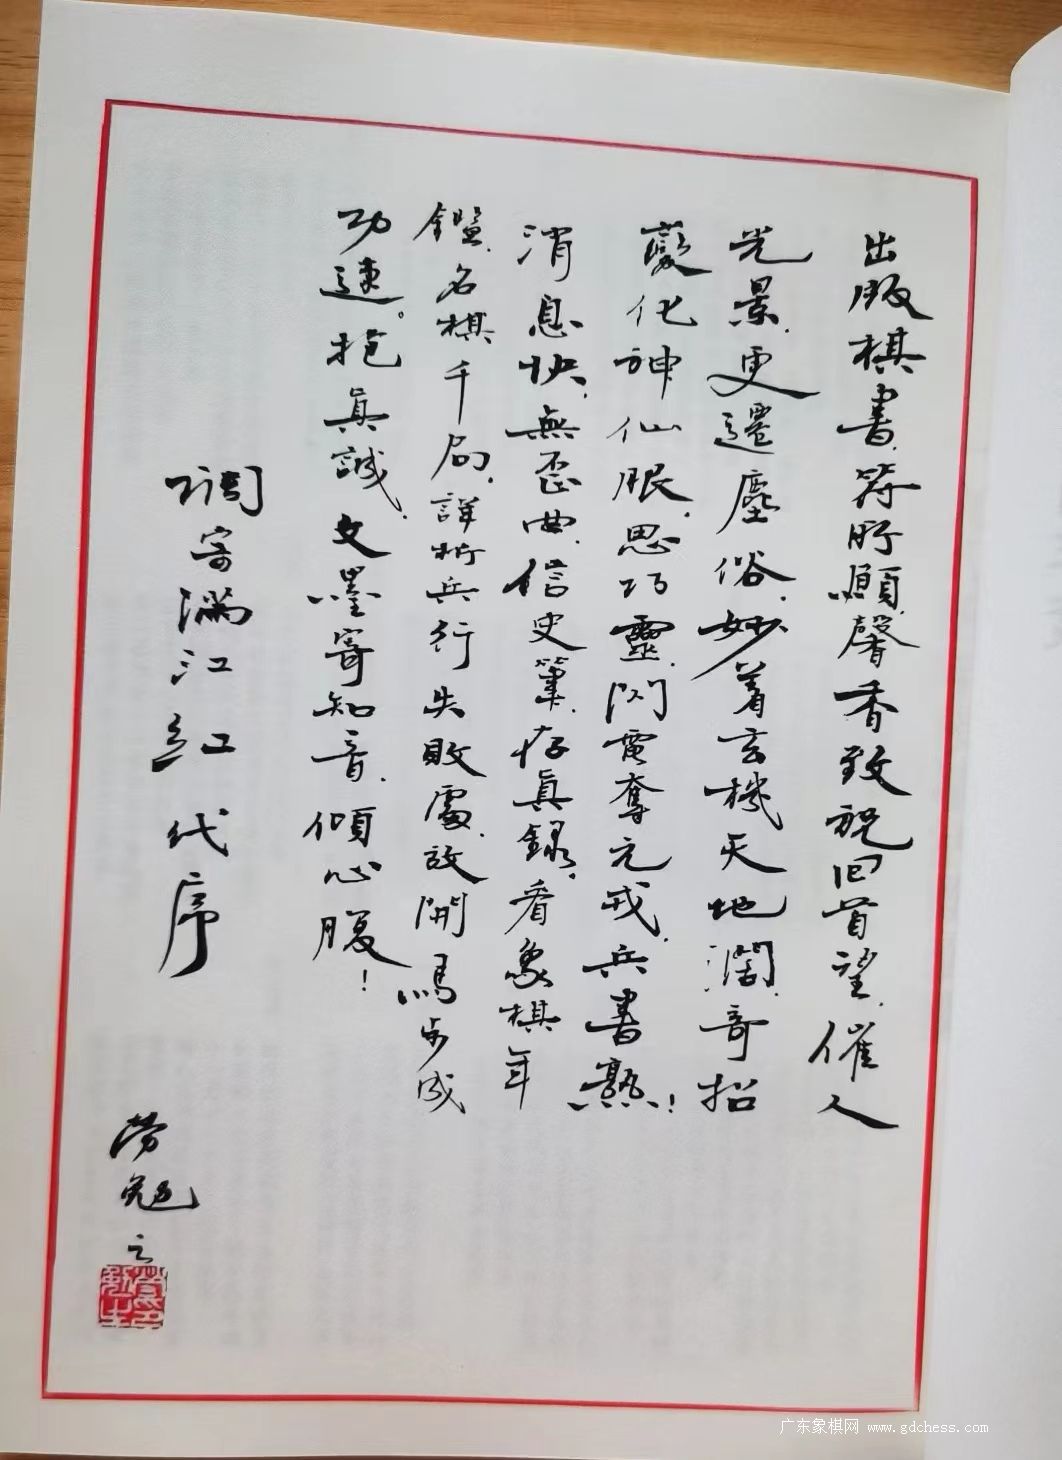 出版棋書.符所願.馨香致祝.回首望.催人
光景.更遷塵俗.妙着玄機天地濶.奇招
變化神仙眼.思巧靈.閃電奪元戎.兵書熟!
消息快.無歪曲.信史筆.存真録.看象棋年
鑑.名棋千局.詳析兵行失敗處.故開馬步成
功速。抱真誠.文墨寄知音.傾心腹!
調寄滿江紅 代序
勞勉之
广东象棋网 www.gdchess.com